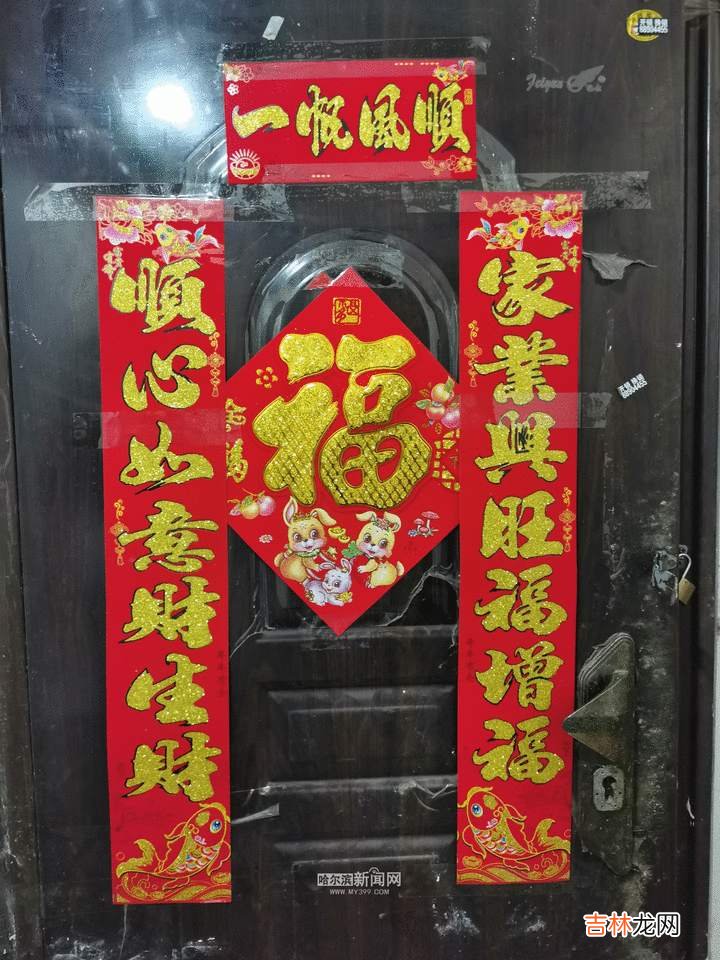 一帆風順
家業興旺福增福
順心如意財生財
福
开锁 换锁
开锁 换锁
哈尔滨新闻网
WWW.MY399.COM
吉林龙网